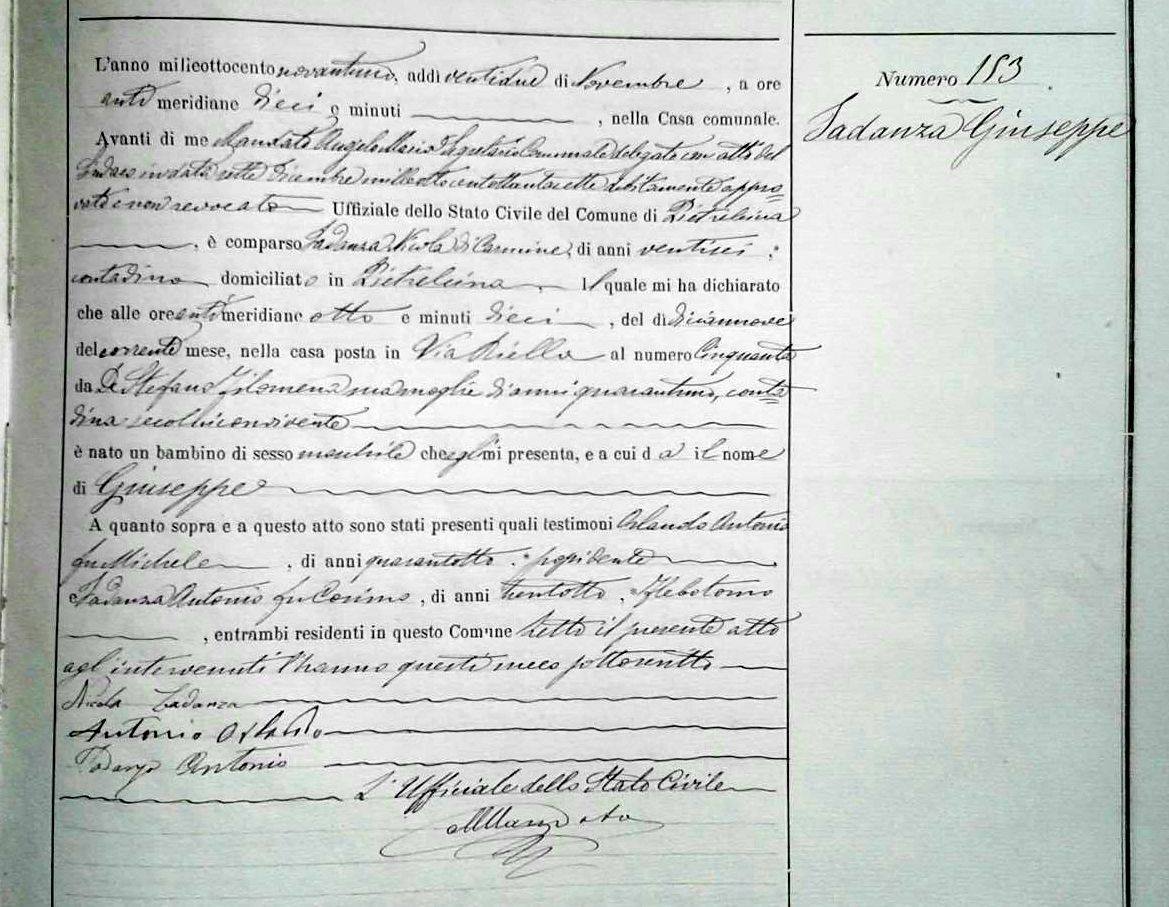 L'anno milleottocento novantuno, addì ventidue di Novembre, a ore
anti meridiane dieci e minuti, nella Casa comunale.
Avanti di me Angelo Maria Segretario Comunale delegato con atto del
Sindaco in data sette Dicembre milleottocentottantasette debitamente appro=
vato e non revocato Uffiziale dello Stato Civile del Comune di Pietrelcina
, è comparso Sadanza Nicola di Carmine, di anni ventisei,
contadino domiciliato in Pietrelcina, il quale mi ha dichiarato
che alle ore anti meridiane otto e minuti dieci, del dì diciannove
del corrente mese, nella casa posta in Via Riella al numero Cinquanta
da De Stefano Filomena sua moglie di anni quarantuno, conta=
dina seco lui convivente
è nato un bambino di sesso maschile che egli mi presenta, e a cui dà il nome
di Giuseppe
A quanto sopra e a questo atto sono stati presenti quali testimoni Orlando Antonio
fu Michele, di anni quarantotto, possidente
e Sadanza Antonio fu Cosimo, di anni trentotto, Flebotomo
, entrambi residenti in questo Comune Letto il presente atto
agl'intervenuti l'hanno questi meco sottoscritto
Nicola Sadanza
Antonio Orlando
Antonio
L'Ufficiale dello Stato Civile
Numero 153
Sadanza Giuseppe